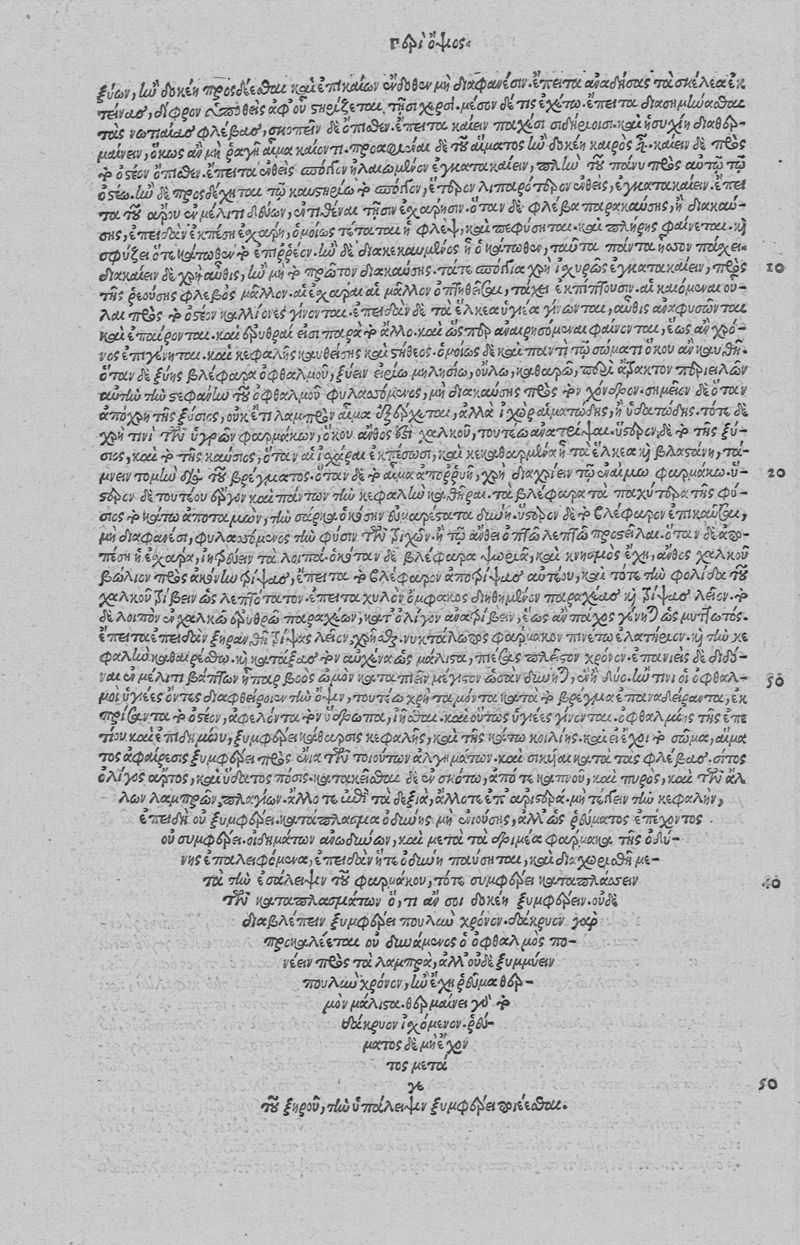 περὶ ὄψιος.
ξύων, ἢν δοκέῃ προσδέεσθαι καὶ ἐπικαίων ἔνδοθεν μὴ διαφανέσιν. ἔπειτα ἀναδήσας τὰ σκέλεα ἐκ
τείνας, δίφρον ὑποθεὶς ἀφ' οὗ στηρίζεται τῇσι χερσί. μέσον δέ τις ἐχέτω. ἔπειτα διασημήνασθαι
τὰς νωτιαίας φλέβας, σκοπεῖν δὲ ὄπισθεν. ἔπειτα καίειν παχέσι σιδηρίοισι. καὶ ἡσυχῇ διαθερ-
μαίνειν, ὅκως ἂν μὴ ῥαγῇ αἷμα καίοντι. προαφιέναι δὲ τοῦ αἵματος ἢν δοκέῃ καιρὸς εἶναι. καίειν δὲ πρὸς
τὸ ὀστέον ὄπισθεν. ἔπειτα ἐνθεὶς σπόγγον ἠλαιωμένον ἐγκατακαίειν, πλὴν τοῦ πάνυ πρὸς αὐτῷ τῷ
ὀστέῳ. ἢν δὲ προσδέχηται τῷ καυστηρίῳ τὸ σπόγγον, ἕτερον λιπαρώτερον ἐνθεὶς, ἐγκατακαίειν. ἔπει
τα τοῦ ἄρου ἐν μέλιτι δεύων, ἐντιθέναι τῇσιν ἐσχάρῃσιν. ὅταν δὲ φλέβα παρακαύσῃς, ἢ διακαύ-
σῃς, ἐπειδὰν ἐκπέσῃ ἐσχάρη, ὁμοίως τέταται ἡ φλὲψ, καὶ πεφύσηται. καὶ πλήρης φαίνεται. καὶ
σφύζει ὅτε κάτωθεν τὸ ἐπιῤῥέον. ἢν δὲ διακεκαυμένος ᾖ ὁ κάτωθεν, ταῦτα πάντα ἧσσον πάσχει.
διακαίειν δὲ χρὴ αὖθις, ἢν μὴ τὸ πρῶτον διακαύσῃς. τά τε σπόγγια χρὴ ἰσχυρῶς ἐγκατακαίειν, πρὸς 10
τῆς ῥεούσης φλεβὸς μᾶλλον. αἱ ἐσχάραι αἱ μᾶλλον ὀπτηθεῖσαι, τάχει ἐκπίπτουσιν. αἱ καιόμεναι οὐ-
λαὶ πρὸς τὸ ὀστέον καλλίονες γίνονται. ἐπειδὰν δὲ τὰ ἕλκεα ὑγιέα γίνωνται, αὖθις ἀναφυσῶνται
καὶ ἐπαίρονται. καὶ ἐρυθραί εἰσι παρὰ τὸ ἄλλο. καὶ ὥσπερ ἀναιρησόμεναι φαίνονται, ἕως ἂν χρό-
νος ἐπιγένηται. καὶ κεφαλῆς καυθείσης καὶ στήθεος. ὁμοίως δὲ καὶ παντὶ τῷ σώματι ὅκου ἂν καυθῇ.
ὅταν δὲ ξύῃς βλέφαρα ὀφθαλμοῦ, ξύειν εἰρίῳ μιλησίῳ, οὔλῳ, καθαρῷ, περὶ ἄτρακτον περιειλῶν
αὐτὴν τὴν στεφάνην τοῦ ὀφθαλμοῦ φυλασσόμενος, μὴ διακαύσῃς πρὸς τὸν χόνδρον. σημεῖον δὲ ὅταν
ἀπόχρη τῆς ξύσιος, οὐκ ἔτι λαμπρὸν αἷμα ἐξέρχεται, ἀλλὰ ἰχὼρ αἱματώδης, ἢ ὑδατώδης. τότε δὲ
χρή τινι τῶν ὑγρῶν φαρμάκων, ὅκου ἄνθος ἐστὶ χαλκοῦ, τουτέῳ ἀνατρῖψαι. ὕστερον δὲ τὸ τῆς ξύ-
σιος, καὶ τὸ τῆς καύσιος, ὅταν αἱ ἐσχάραι ἐκπέσωσι, καὶ κεκαθαρμένα ᾖ τὰ ἕλκεα καὶ βλαστάνῃ, τά-
μνειν τομὴν διὰ τοῦ βρέγματος. ὅταν δὲ τὸ αἷμα ἀποῤῥυῇ, χρὴ διαχρίειν τῷ ἐναίμῳ φαρμάκῳ. ὕ- 20
στερον δὲ τουτέου ἔργον καὶ πάντων τὴν κεφαλὴν καθῆραι. τὰ βλέφαρα τὰ παχύτερα τῆς φύ-
σιος τὸ κάτω ἀποταμὼν, τὴν σάρκα ὁκόσην εὐμαρέστατα δύνῃ. ὕστερον δὲ τὸ βλέφαρον ἐπικαῦσαι,
μὴ διαφανέσι, φυλασσόμενος τὴν φύσιν τῶν τριχῶν. ἢ τῷ ἄνθει ὀπτῷ λεπτῷ προσεῖλαι. ὅταν δὲ ἀπο-
πέσῃ ἡ ἐσχάρα, ἰητρεύειν τὰ λοιπά. ὁκόταν δὲ βλέφαρα ψωριᾷ, καὶ κνησμὸς ἔχῃ, ἄνθος χαλκοῦ
βώλιον πρὸς ἀκόνην τρίψας, ἔπειτα τὸ βλέφαρον ἀποτρίψας αὐτέου, καὶ τότε τὴν φολίδα τοῦ
χαλκοῦ τρίβειν ὡς λεπτότατον. ἔπειτα χυλὸν ὄμφακος διηθημένον παραχέας καὶ τρίψας λεῖον. τὸ
δὲ λοιπὸν ἐν χαλκῷ ἐρυθρῷ παραχέων, κατ' ὀλίγον ἀνατρίβειν, ἕως ἂν πάχος γένηται ὡς μυττωτός.
ἔπειτα ἐπειδὰν ξηρανθῇ τρίψας λεῖον, χρῆσθαι. νυκτάλωπος φάρμακον πινέτω ἐλατήριον. καὶ τὴν κε
φαλὴν καθαιρέσθω. καὶ κατάξας τὸν αὐχένα ὡς μάλιστα, πιέζας πλεῖστον χρόνον. ἐπανιεὶς δὲ διδό-
ναι ἐν μέλιτι βάπτων ἧπαρ βοὸς ὠμὸν καταπιεῖν μέγιστον ὡς ἂν δύνηται, ἓν ἢ δύο. ἤν τινι οἱ ὀφθαλ- 30
μοὶ ὑγιέες ὄντες διαφθείροιεν τὴν ὄψιν, τουτέῳ χρὴ ταμόντα κατὰ τὸ βρέγμα ἐπαναδείραντα, ἐκ
πρίσαντα τὸ ὀστέον, ἀφελόντα τὸν ὕδρωπα, ἰῆσθαι. καὶ οὕτως ὑγιέες γίνονται. ὀφθαλμίης τῆς ἐπε
τίου καὶ ἐπιδημίου, ξυμφέρει κάθαρσις κεφαλῆς, καὶ τῆς κάτω κοιλίης. καὶ εἰ ἔχοι τὸ σῶμα, αἵμα
τος ἀφαίρεσις ξυμφέρει πρὸς ἔνια τῶν τοιούτων ἀλγημάτων. καὶ σικύαι κατὰ τὰς φλέβας. σῖτος
ὀλίγος ἄρτος, καὶ ὕδατος πόσις. κατακεῖσθαι δὲ ἐν σκότῳ, ἀπό τε καπνοῦ, καὶ πυρὸς, καὶ τῶν ἄλ
λων λαμπρῶν, πλαγίων. ἄλλοτε ἐπὶ τὰ δεξιὰ, ἄλλοτε ἐπ' ἀριστερά. μὴ τέγγειν τὴν κεφαλὴν,
ἐπειδὴ οὐ ξυμφέρει. κατάπλασμα ὀδύνης μὴ ἐνιούσης, ἀλλ' ὡς ῥεύματος ἐπέχοντος
οὐ συμφέρει. οἰδημάτων ἀνωδύνων, καὶ μετὰ τὰ δριμέα φάρμακα τῆς ὀδύ-
νης ἐπαλειφόμενα, ἐπειδὰν ἥ τε ὀδύνη παύσηται, καὶ διαχωρισθῇ με-
τὰ τὴν ἐσάλειψιν τοῦ φαρμάκου, τότε συμφέρει καταπλάσσειν 40
τῶν καταπλασμάτων ὅ, τι ἄν σοι δοκέῃ ξυμφέρειν. οὐδὲ
διαβλέπειν ξυμφέρει πουλὺν χρόνον. δάκρυον γὰρ
προκαλέεται οὐ δυνάμενος ὁ ὀφθαλμὸς πο-
νέειν πρὸς τὰ λαμπρὰ, ἀλλ' οὐδὲ ξυμμύειν
πουλὺν χρόνον, ἢν ἔχῃ ῥεῦμα θερ-
μὸν μάλιστα. θερμαίνει γὰρ τὸ
δάκρυον ἰσχόμενον. ῥεύ-
ματος δὲ μὴ ἔχον
τος μετά
γε 50
τοῦ ξηροῦ, τὴν ὑπάλειψιν ξυμφέρει ποιέεσθαι.